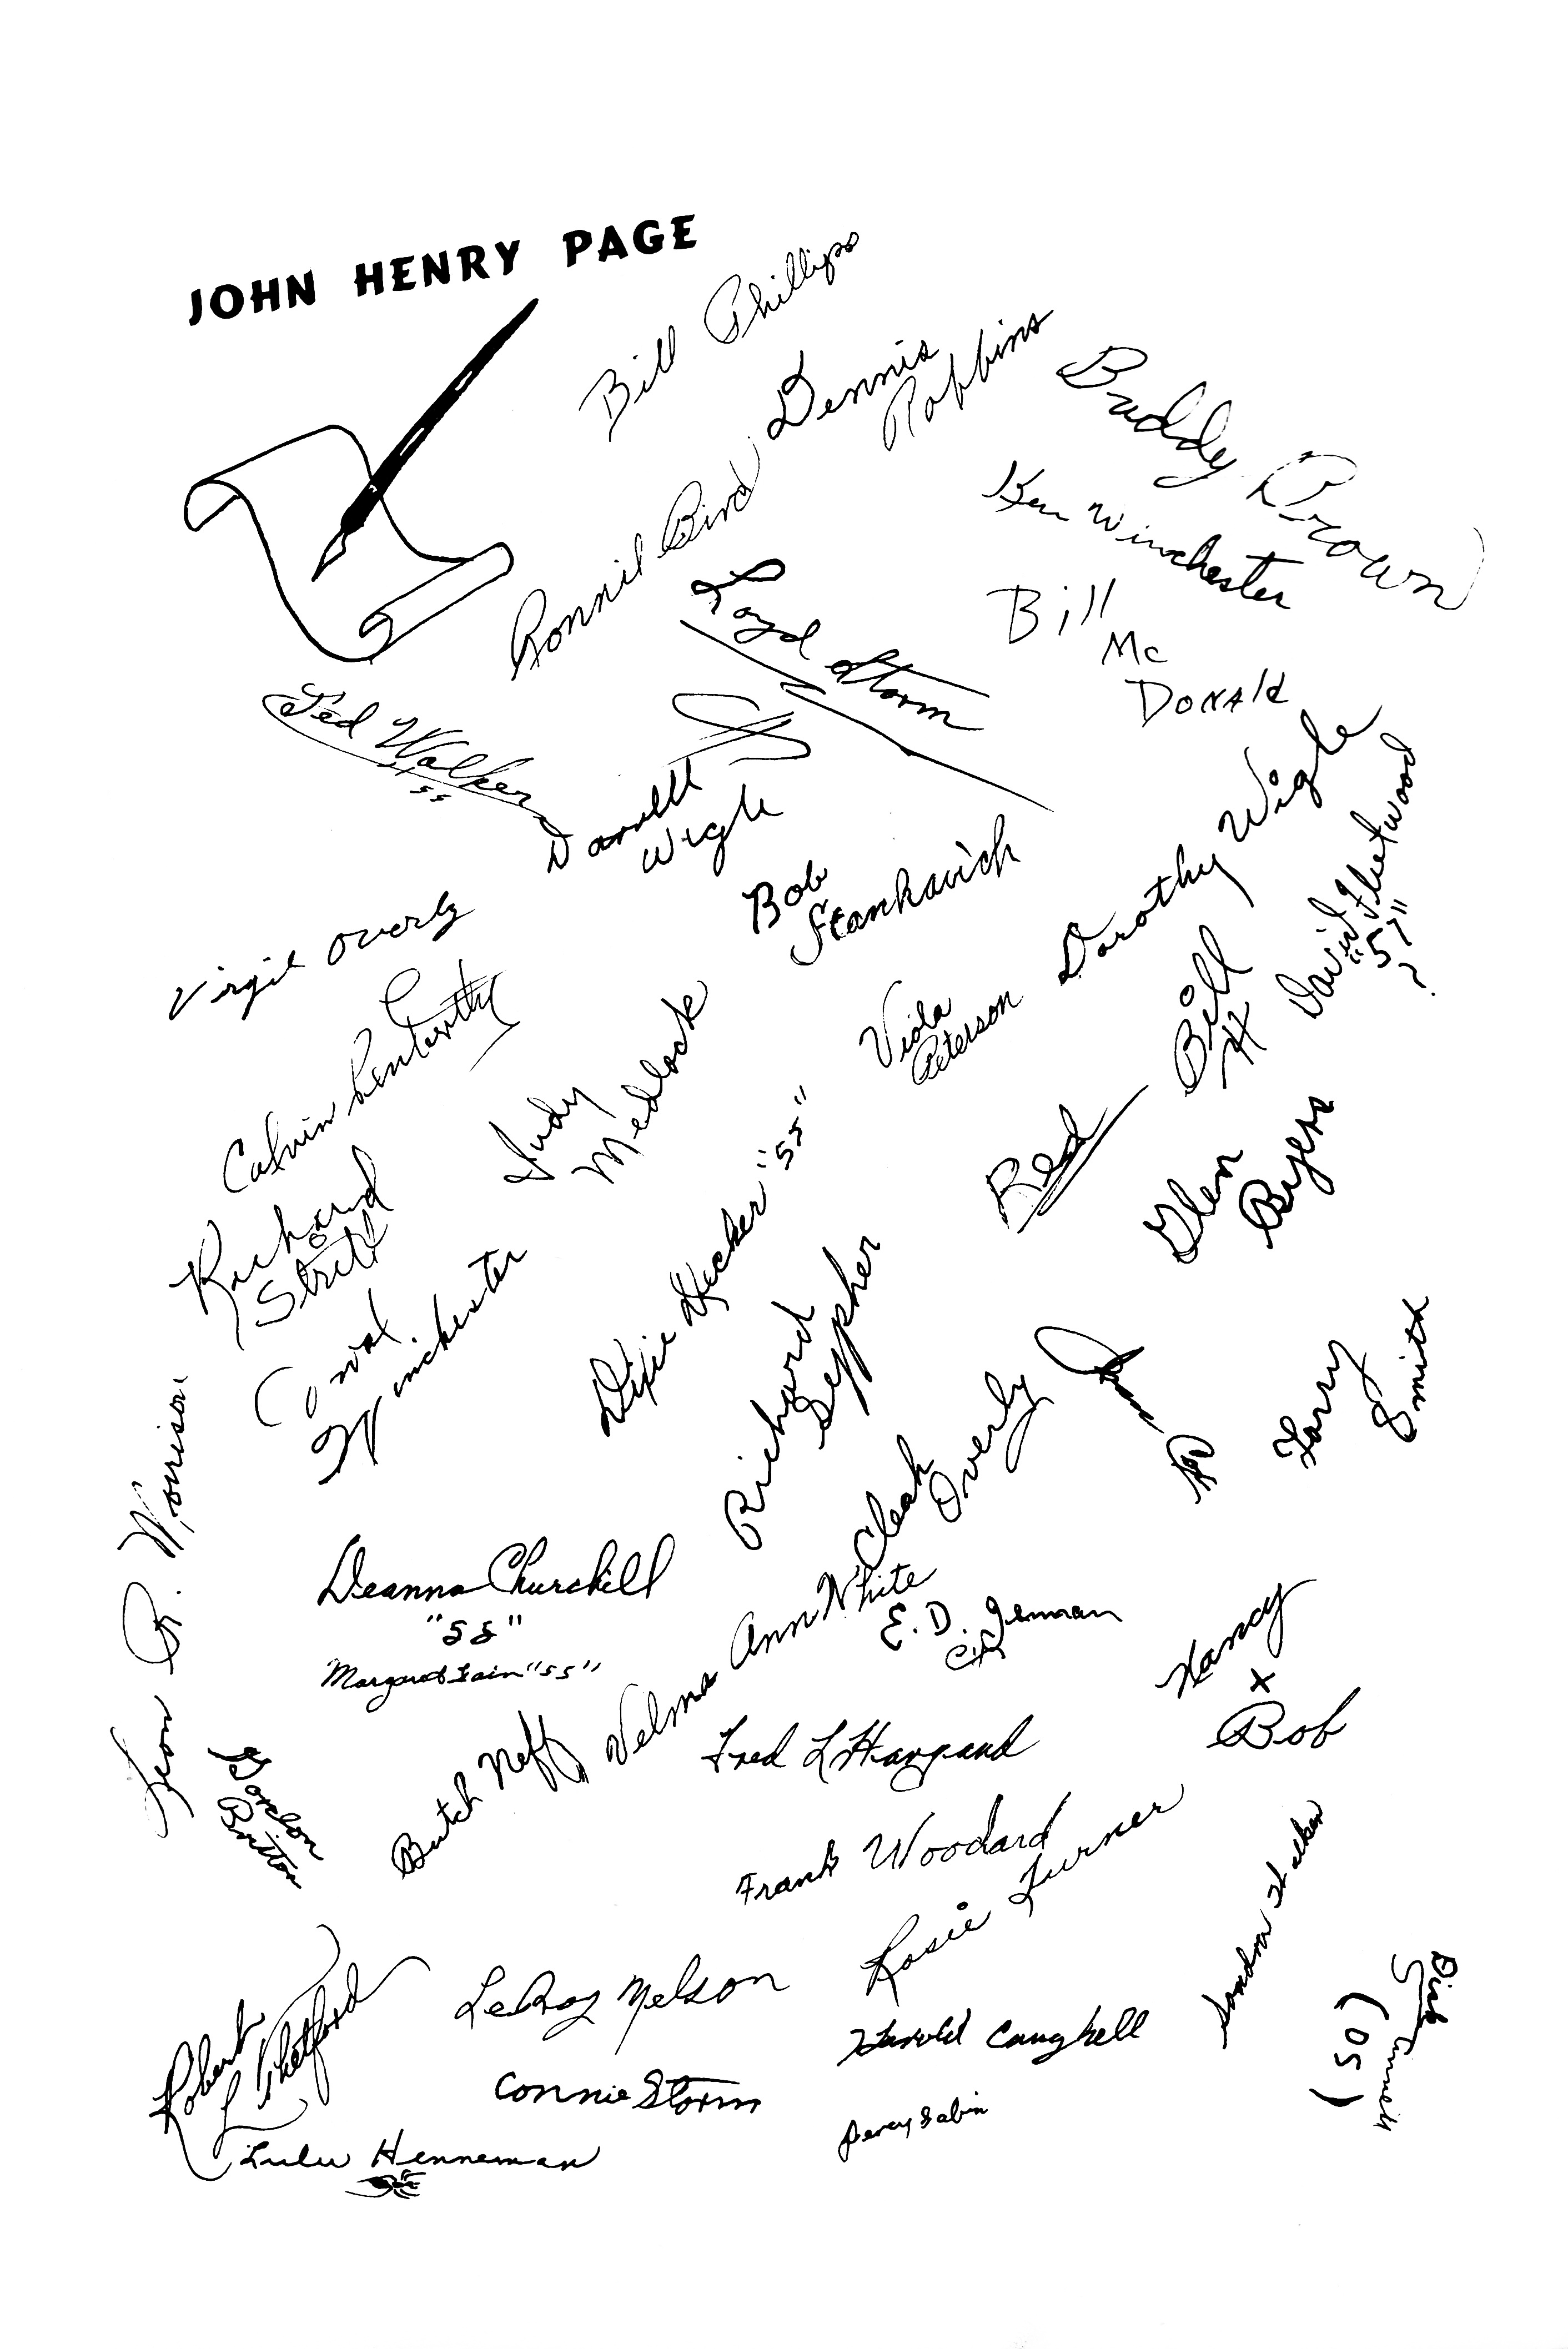 JOHN HENRY PAGE
Bill Phillips
Dennis
Robbins
Buddy Brown
Ronnie Bird
Ken Winchester
Loyd Storm
Bill
Mc
Donald
Ted Walker
55
Darrell
Wigle
Bob
Stankavich
Dorothy Wigle
David Fleetwood
"57"
?
Virgil Overly
Viola
Peterson
Bill
H
Calvin
Judy
Medlock
Red
Glen
Byers
Richard
Winchester
Dixie Hicker "55"
Richard
Sepher
Larry
Smith
Cleah
Overly
Leon R. Morrison
Deanna Churchill
"55"
Margaret Fain "55"
Velma Ann White
E. D.
Nancy
+
Bob
Butch Neff
Fred L
Gordon
Britton
Frank Woodard
Rosie Turner
Sandra Walker
Robert
L Shelford
LeRoy Nelson
Harold Campbell
Dick
(50)
Connie Storm
Percy Sabin
Lulu Henneman